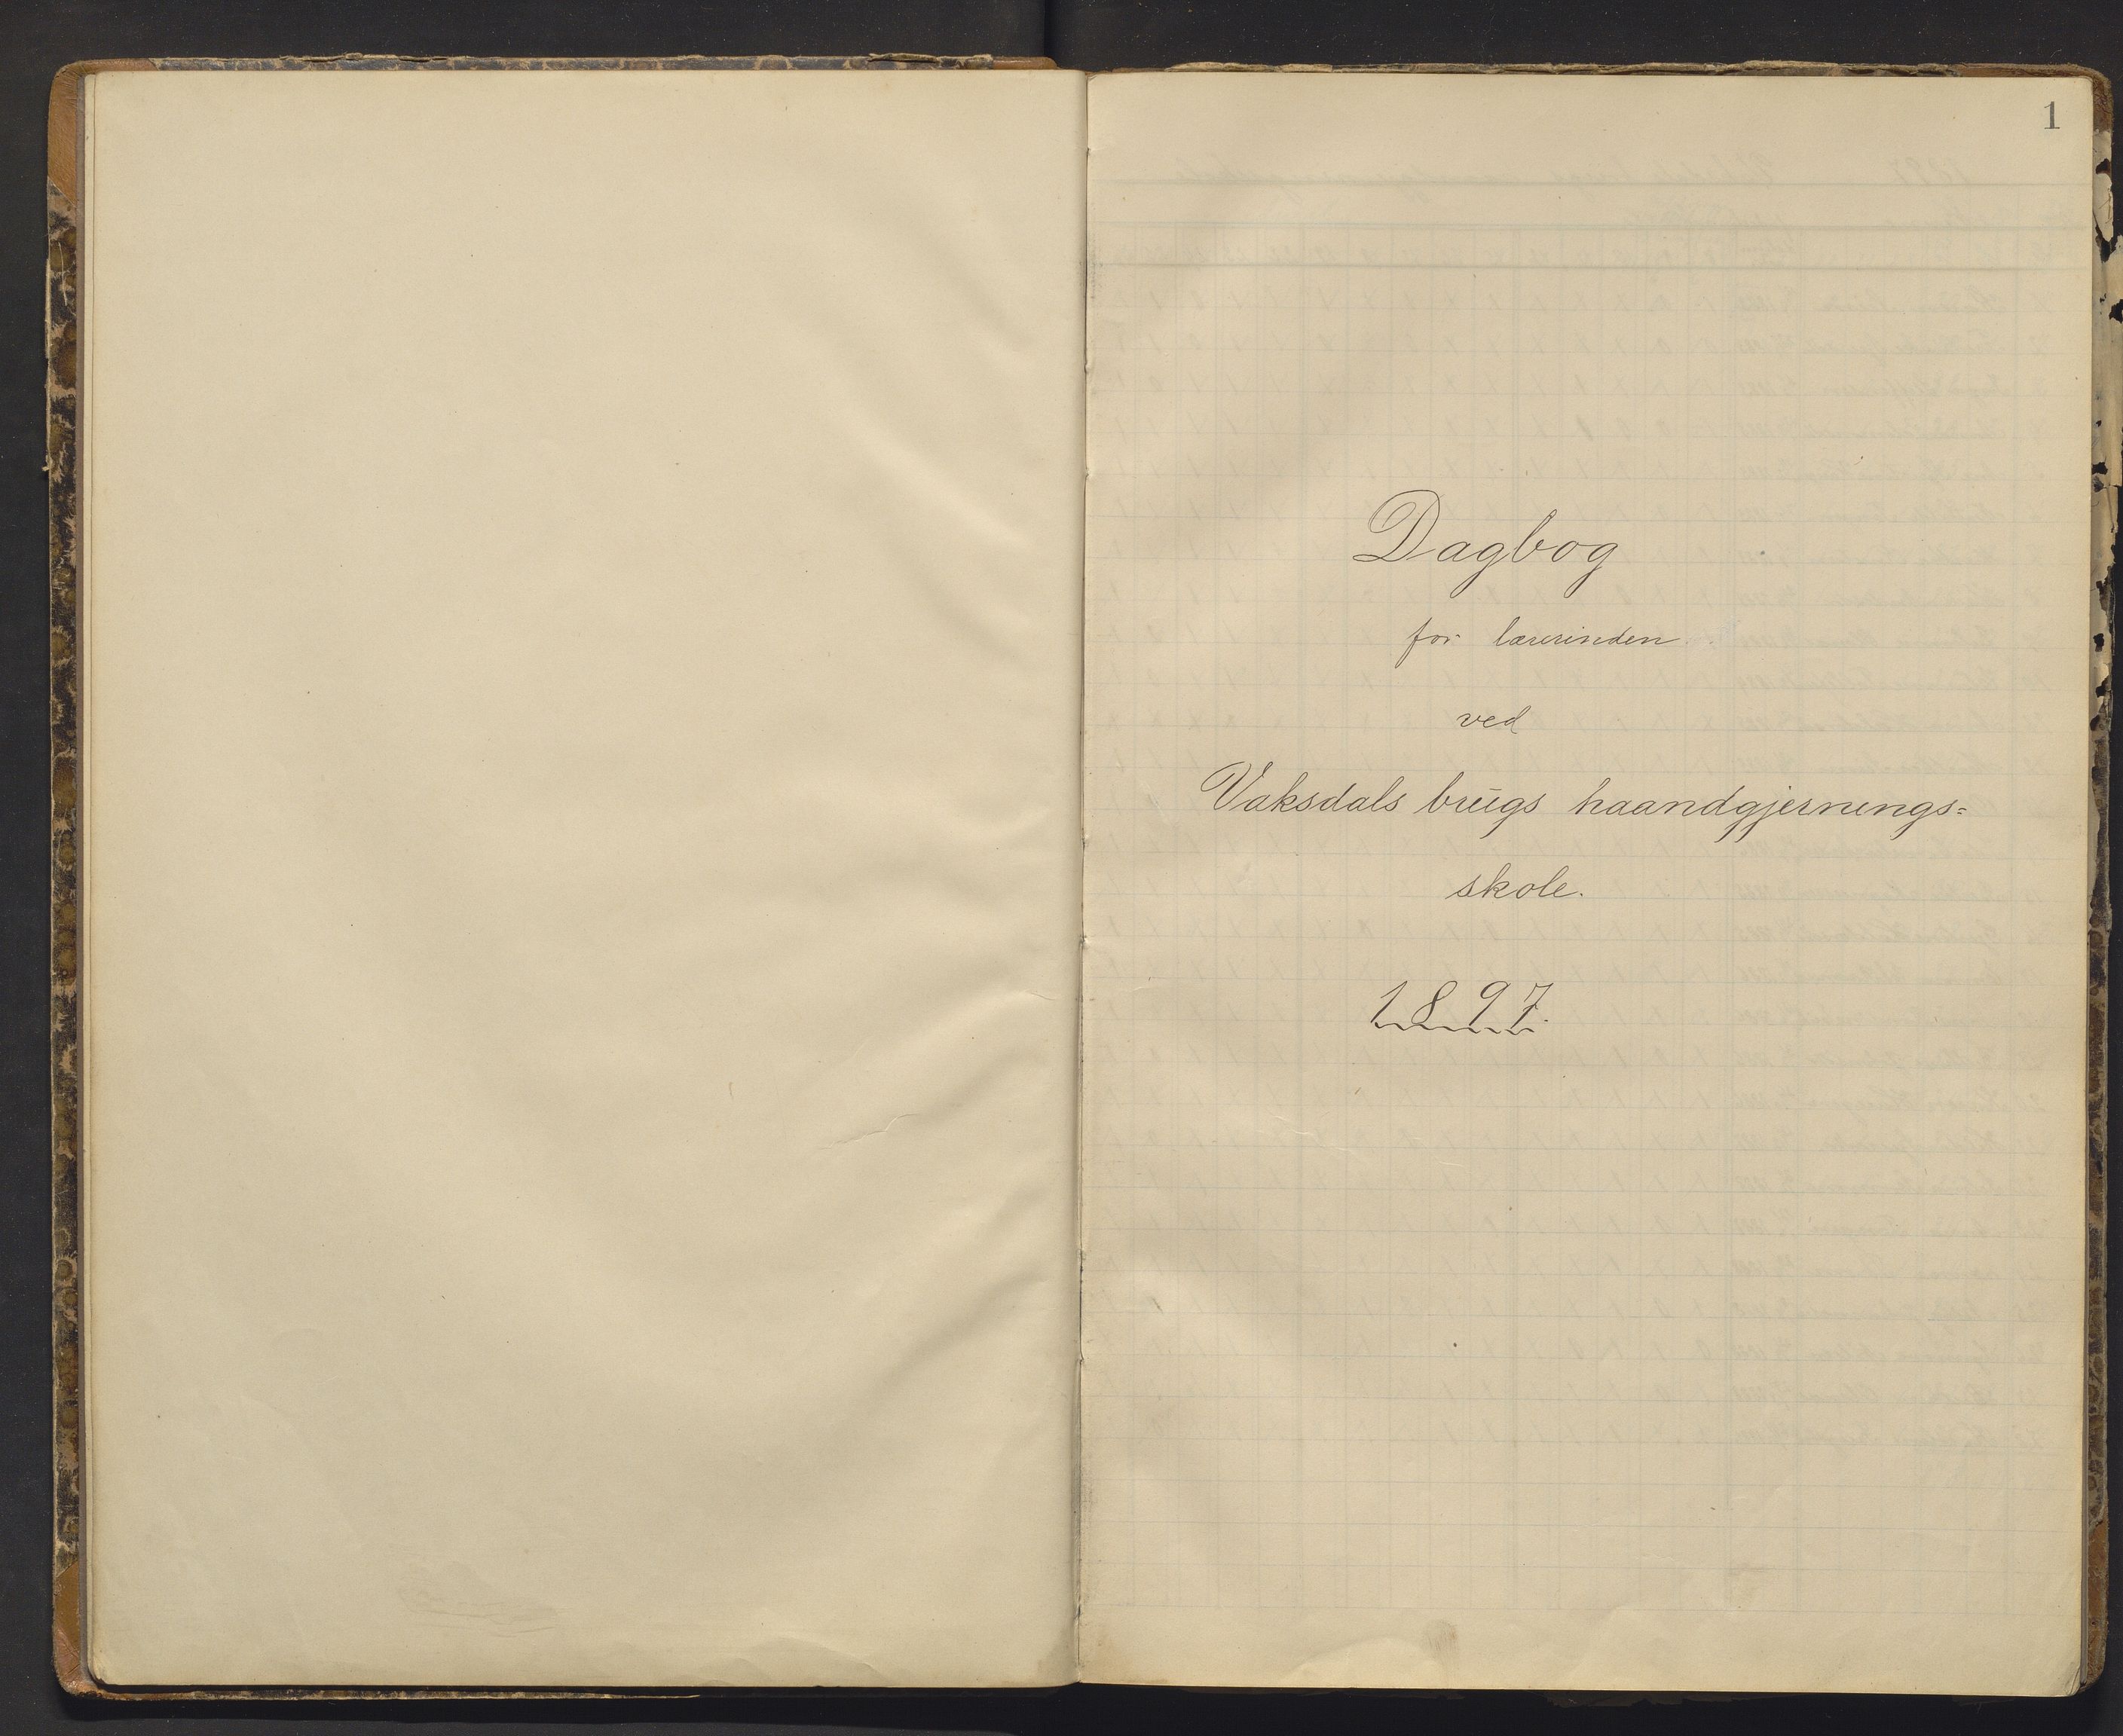 1
Dagbog
for lærerinden
ved
Vaksdals brugs haandgjernings=
skole.
1897.